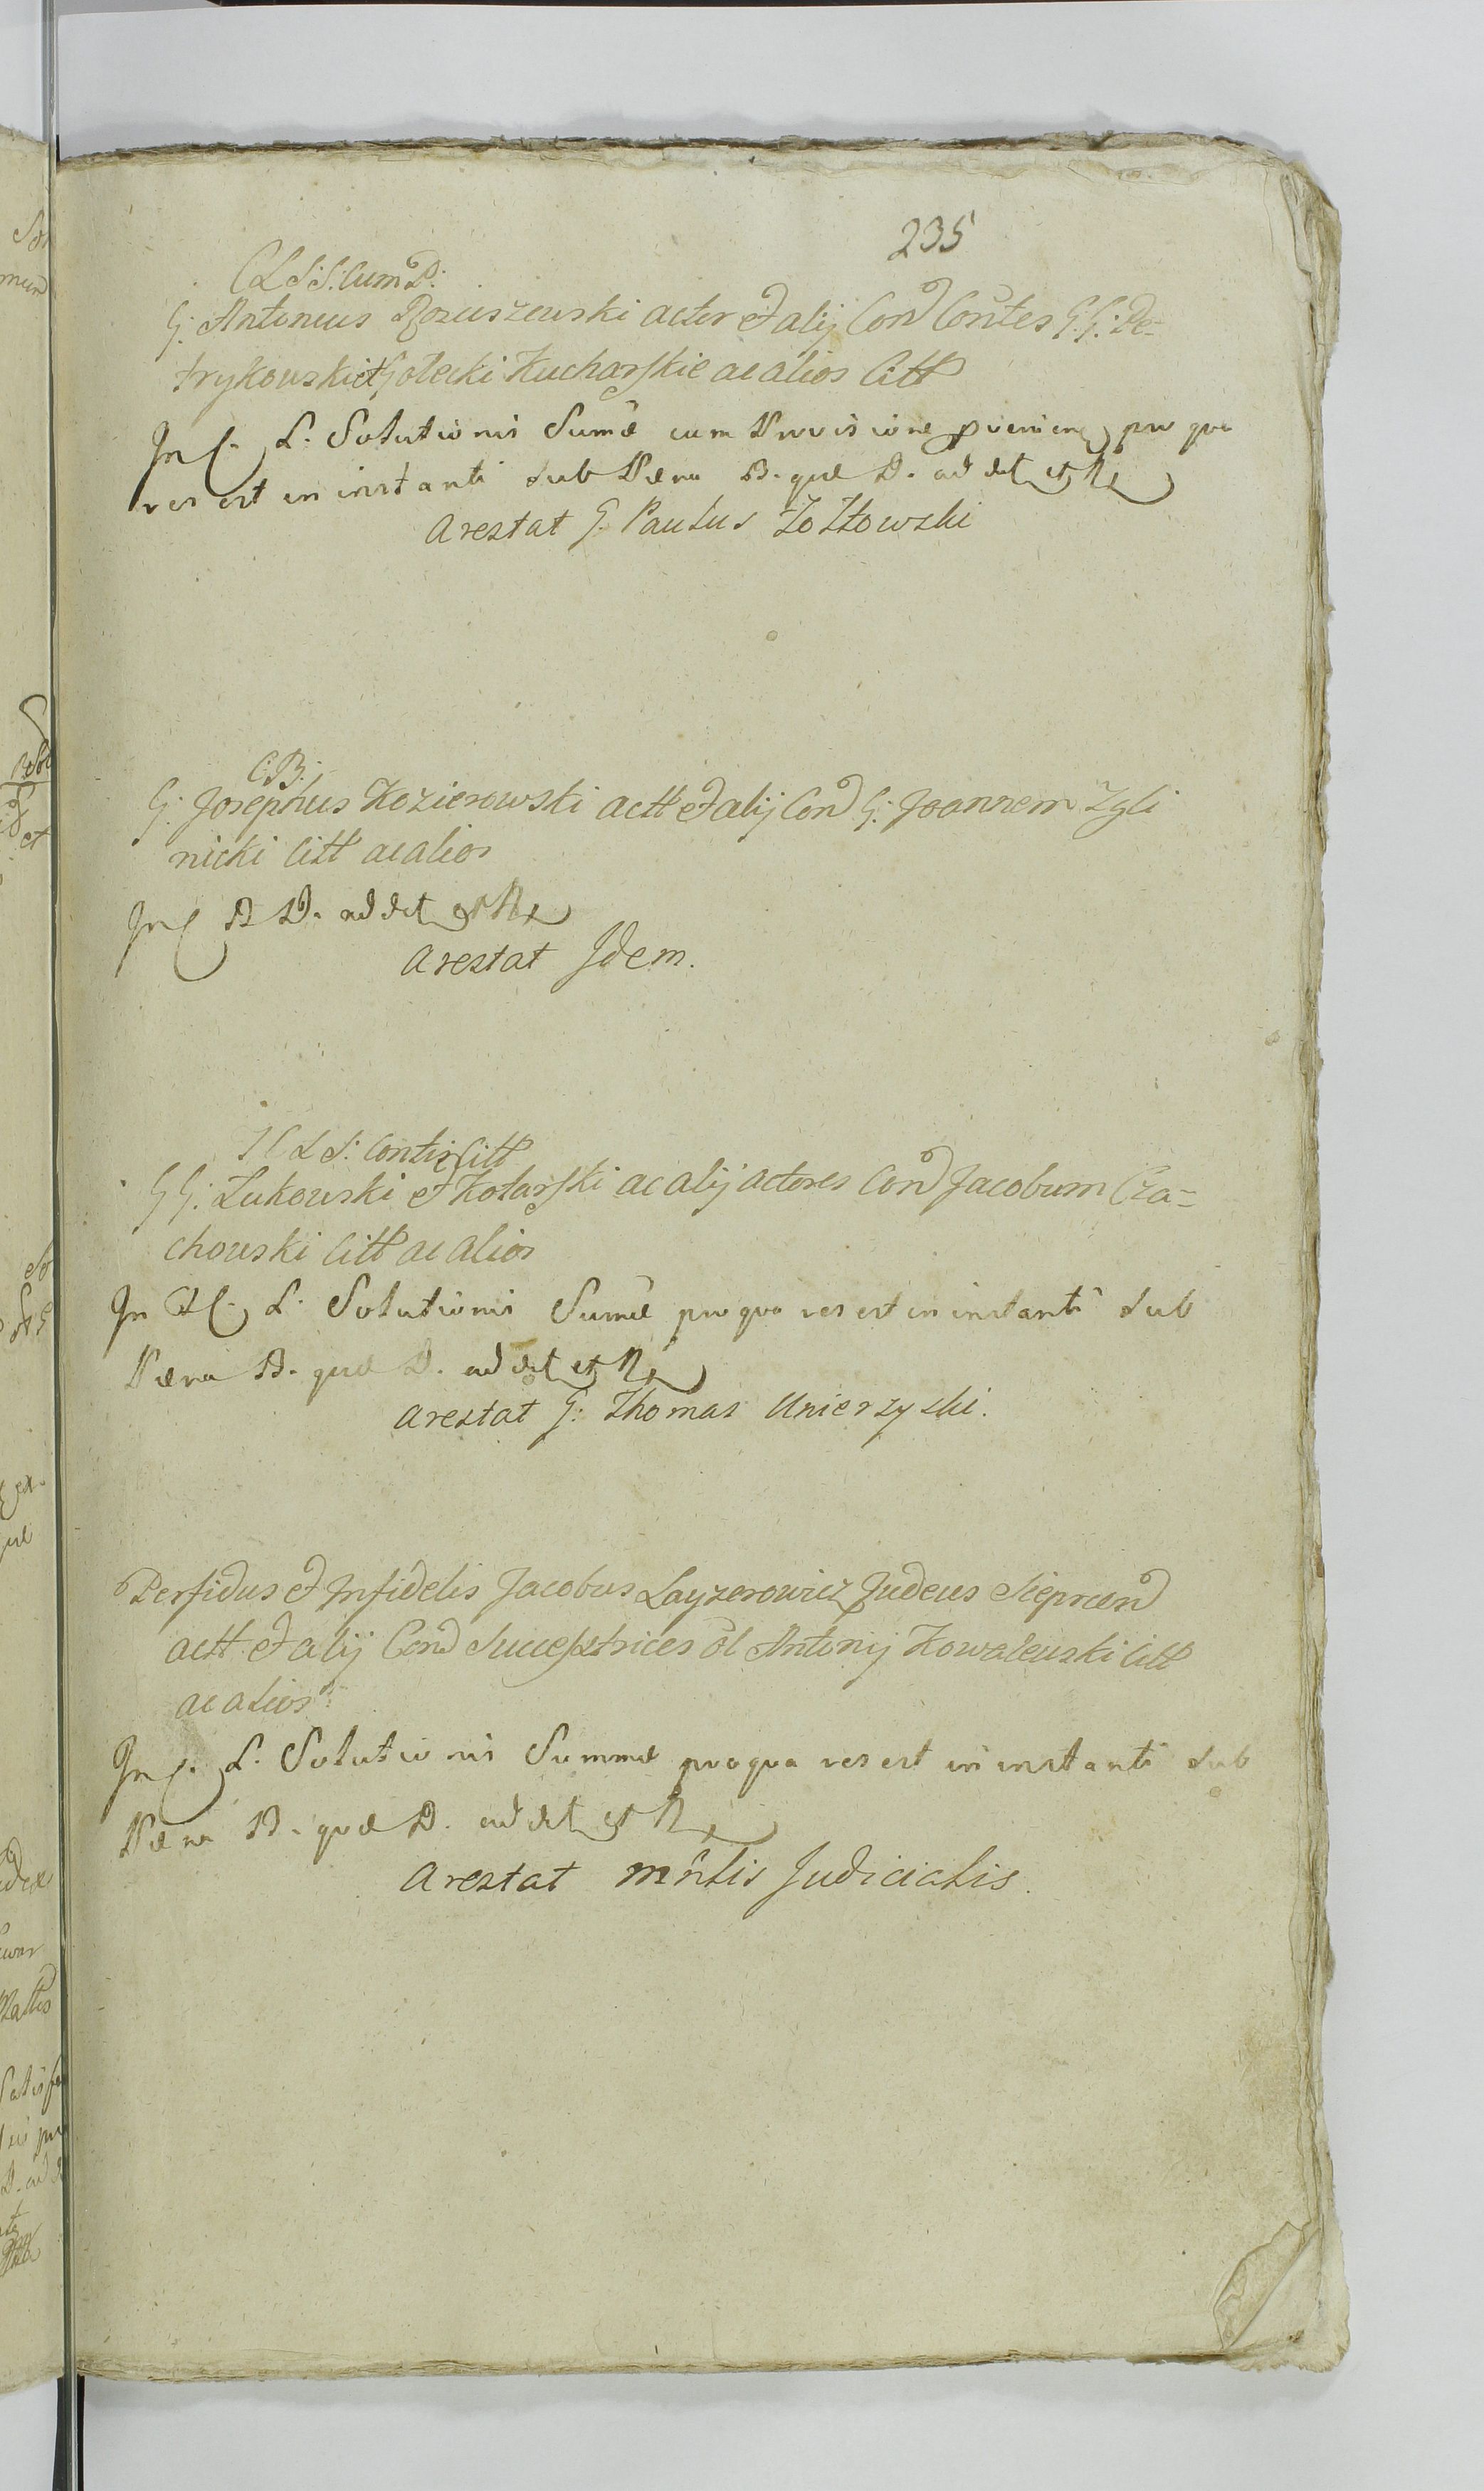 235
C L S: S: Cum P:
G: Antonius Rosciszewski actor et alij Con Contes G: G: Pe-
trykowski et Gotecki Kucharskie ac alios Citt
In C. L. Solutionis Sumae cum Provisione proveniens pro qua
res est in instanti sub Paena B. quae D. ad det et R
arestat G. Paulus Zołtowski
C: B:
G: Josephus Kozierowski actt et alij Con G: Joannem Zyli
nicki Citt ac alios
In C B D. ad det et R
arestat Idem.
C L S: Contis Citt
G G: Lukowski et Kolarski ac alij actores Con Jacobum Cza=
chowski Citt ac alios
In C. L. Solutionis Sumae pro qua res est in instanti sub
Paena B. quae D. ad det et R
arestat G: Thomas Unierzyski.
Perfidus et Infidelis Jacobus Layzerowicz Judeus Sieprcen
actt et alij Con Succeptrices ol Antonij Kowalewski Citt
ac alios
In C. L. Solutionis Summae pro qua res est in instanti sub
Paena B. quae D. ad det et R
arestat mñlis Judicialis.